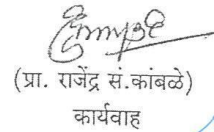 (प्रा. राजेंद्र सं.कांबळे)
कार्यवाह